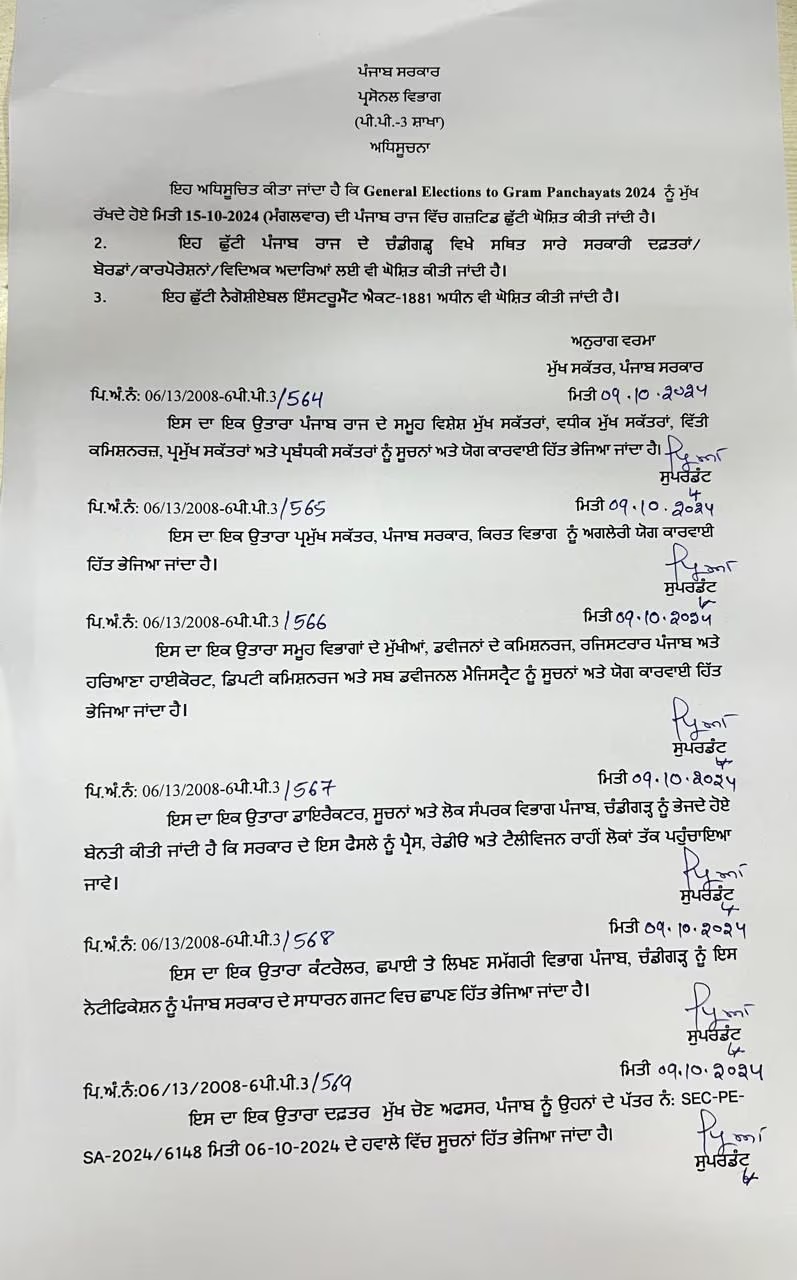 ਪੰਜਾਬ ਸਰਕਾਰ
ਪ੍ਰਸੋਨਲ ਵਿਭਾਗ
(ਪੀ.ਪੀ.-3 ਸ਼ਾਖਾ)
ਅਧਿਸੂਚਨਾ
ਇਹ ਅਧਿਸੂਚਿਤ ਕੀਤਾ ਜਾਂਦਾ ਹੈ ਕਿ General Elections to Gram Panchayats 2024 ਨੂੰ ਮੁੱਖ
ਰੱਖਦੇ ਹੋਏ ਮਿਤੀ 15-10-2024 (ਮੰਗਲਵਾਰ) ਦੀ ਪੰਜਾਬ ਰਾਜ ਵਿੱਚ ਗਜ਼ਟਿਡ ਛੁੱਟੀ ਘੋਸ਼ਿਤ ਕੀਤੀ ਜਾਂਦੀ ਹੈ।
2. ਇਹ ਛੁੱਟੀ ਪੰਜਾਬ ਰਾਜ ਦੇ ਚੰਡੀਗੜ੍ਹ ਵਿਖੇ ਸਥਿਤ ਸਾਰੇ ਸਰਕਾਰੀ ਦਫ਼ਤਰਾਂ/
ਬੋਰਡਾਂ/ਕਾਰਪੋਰੇਸ਼ਨਾਂ/ਵਿਦਿਅਕ ਅਦਾਰਿਆਂ ਲਈ ਵੀ ਘੋਸ਼ਿਤ ਕੀਤੀ ਜਾਂਦੀ ਹੈ।
3. ਇਹ ਛੁੱਟੀ ਨੈਗੋਸ਼ੀਏਬਲ ਇੰਸਟਰੂਮੈਂਟ ਐਕਟ-1881 ਅਧੀਨ ਵੀ ਘੋਸ਼ਿਤ ਕੀਤੀ ਜਾਂਦੀ ਹੈ।
ਅਨੁਰਾਗ ਵਰਮਾ
ਮੁੱਖ ਸਕੱਤਰ, ਪੰਜਾਬ ਸਰਕਾਰ
ਪਿ.ਅੰ.ਨੰ: 06/13/2008-6ਪੀ.ਪੀ.3/564 ਮਿਤੀ 09.10.੨੦੨੫
ਇਸ ਦਾ ਇਕ ਉਤਾਰਾ ਪੰਜਾਬ ਰਾਜ ਦੇ ਸਮੂਹ ਵਿਸ਼ੇਸ਼ ਮੁੱਖ ਸਕੱਤਰਾਂ, ਵਧੀਕ ਮੁੱਖ ਸਕੱਤਰਾਂ, ਵਿੱਤੀ
ਕਮਿਸ਼ਨਰਜ਼, ਪ੍ਰਮੁੱਖ ਸਕੱਤਰਾਂ ਅਤੇ ਪ੍ਰਬੰਧਕੀ ਸਕੱਤਰਾਂ ਨੂੰ ਸੂਚਨਾਂ ਅਤੇ ਯੋਗ ਕਾਰਵਾਈ ਹਿੱਤ ਭੇਜਿਆ ਜਾਂਦਾ ਹੈ।
ਸੁਪਰਡੰਟ
ਪਿ.ਅੰ.ਨੰ: 06/13/2008-6ਪੀ.ਪੀ.3/565 ਮਿਤੀ 09.10.੨੦੨੫
ਇਸ ਦਾ ਇਕ ਉਤਾਰਾ ਪ੍ਰਮੁੱਖ ਸਕੱਤਰ, ਪੰਜਾਬ ਸਰਕਾਰ, ਕਿਰਤ ਵਿਭਾਗ ਨੂੰ ਅਗਲੇਰੀ ਯੋਗ ਕਾਰਵਾਈ
ਹਿੱਤ ਭੇਜਿਆ ਜਾਂਦਾ ਹੈ।
ਸੁਪਰਡੰਟ
ਪਿ.ਅੰ.ਨੰ: 06/13/2008-6ਪੀ.ਪੀ.3/566 ਮਿਤੀ 09.10.੨੦੨੫
ਇਸ ਦਾ ਇਕ ਉਤਾਰਾ ਸਮੂਹ ਵਿਭਾਗਾਂ ਦੇ ਮੁੱਖੀਆਂ, ਡਵੀਜਨਾਂ ਦੇ ਕਮਿਸ਼ਨਰਜ, ਰਜਿਸਟਰਾਰ ਪੰਜਾਬ ਅਤੇ
ਹਰਿਆਣਾ ਹਾਈਕੋਰਟ, ਡਿਪਟੀ ਕਮਿਸ਼ਨਰਜ ਅਤੇ ਸਬ ਡਵੀਜਨਲ ਮੈਜਿਸਟ੍ਰੈਟ ਨੂੰ ਸੂਚਨਾਂ ਅਤੇ ਯੋਗ ਕਾਰਵਾਈ ਹਿੱਤ
ਭੇਜਿਆ ਜਾਂਦਾ ਹੈ।
ਸੁਪਰਡੰਟ
ਪਿ.ਅੰ.ਨੰ: 06/13/2008-6ਪੀ.ਪੀ.3/567 ਮਿਤੀ 09.10.੨੦੨੫
ਇਸ ਦਾ ਇਕ ਉਤਾਰਾ ਡਾਇਰੈਕਟਰ, ਸੂਚਨਾਂ ਅਤੇ ਲੋਕ ਸੰਪਰਕ ਵਿਭਾਗ ਪੰਜਾਬ, ਚੰਡੀਗੜ੍ਹ ਨੂੰ ਭੇਜਦੇ ਹੋਏ
ਬੇਨਤੀ ਕੀਤੀ ਜਾਂਦੀ ਹੈ ਕਿ ਸਰਕਾਰ ਦੇ ਇਸ ਫੈਸਲੇ ਨੂੰ ਪ੍ਰੈਸ, ਰੇਡੀੳ ਅਤੇ ਟੈਲੀਵਿਜਨ ਰਾਹੀਂ ਲੋਕਾਂ ਤੱਕ ਪਹੁੰਚਾਇਆ
ਜਾਵੇ।
ਸੁਪਰਡੰਟ
ਪਿ.ਅੰ.ਨੰ: 06/13/2008-6ਪੀ.ਪੀ.3/568 ਮਿਤੀ 09.10.੨੦੨੫
ਇਸ ਦਾ ਇਕ ਉਤਾਰਾ ਕੰਟਰੋਲਰ, ਛਪਾਈ ਤੇ ਲਿਖਣ ਸਮੱਗਰੀ ਵਿਭਾਗ ਪੰਜਾਬ, ਚੰਡੀਗੜ੍ਹ ਨੂੰ ਇਸ
ਨੋਟੀਫਿਕੇਸ਼ਨ ਨੂੰ ਪੰਜਾਬ ਸਰਕਾਰ ਦੇ ਸਾਧਾਰਨ ਗਜਟ ਵਿਚ ਛਾਪਣ ਹਿੱਤ ਭੇਜਿਆ ਜਾਂਦਾ ਹੈ।
ਸੁਪਰਡੰਟ
ਪਿ.ਅੰ.ਨੰ:06/13/2008-6ਪੀ.ਪੀ.3/569 ਮਿਤੀ 09.10.੨੦੨੫
ਇਸ ਦਾ ਇਕ ਉਤਾਰਾ ਦਫ਼ਤਰ ਮੁੱਖ ਚੋਣ ਅਫਸਰ, ਪੰਜਾਬ ਨੂੰ ਉਹਨਾਂ ਦੇ ਪੱਤਰ ਨੰ: SEC-PE-
SA-2024/6148 ਮਿਤੀ 06-10-2024 ਦੇ ਹਵਾਲੇ ਵਿੱਚ ਸੂਚਨਾਂ ਹਿੱਤ ਭੇਜਿਆ ਜਾਂਦਾ ਹੈ।
ਸੁਪਰਡੰਟ